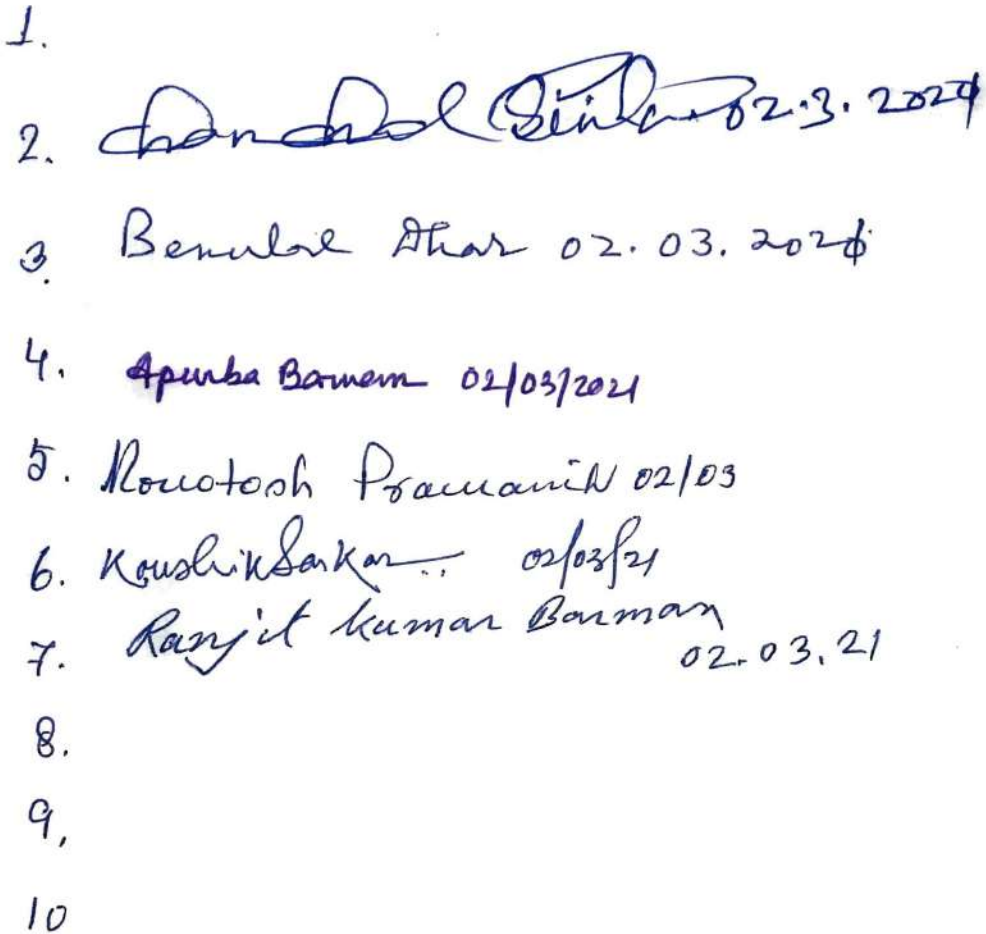 1.
2. Chanchal Sinha 02.3.2021
3. Benulal Dhar 02.03.2021
4. Apurba Barman 02/03/2021
5. Monotosh Pramanik 02/03
6. Koushik Sarkar 02/03/21
7. Ranjit Kumar Barman
02.03.21
8.
9,
10